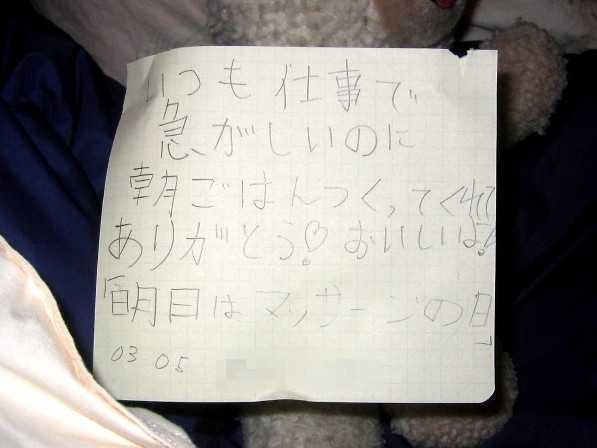 いつも 仕事で
急がしいのに
朝ごはんつくってくれて
ありがとう♡! おいしい
「明日はマッサージの日」
03 05